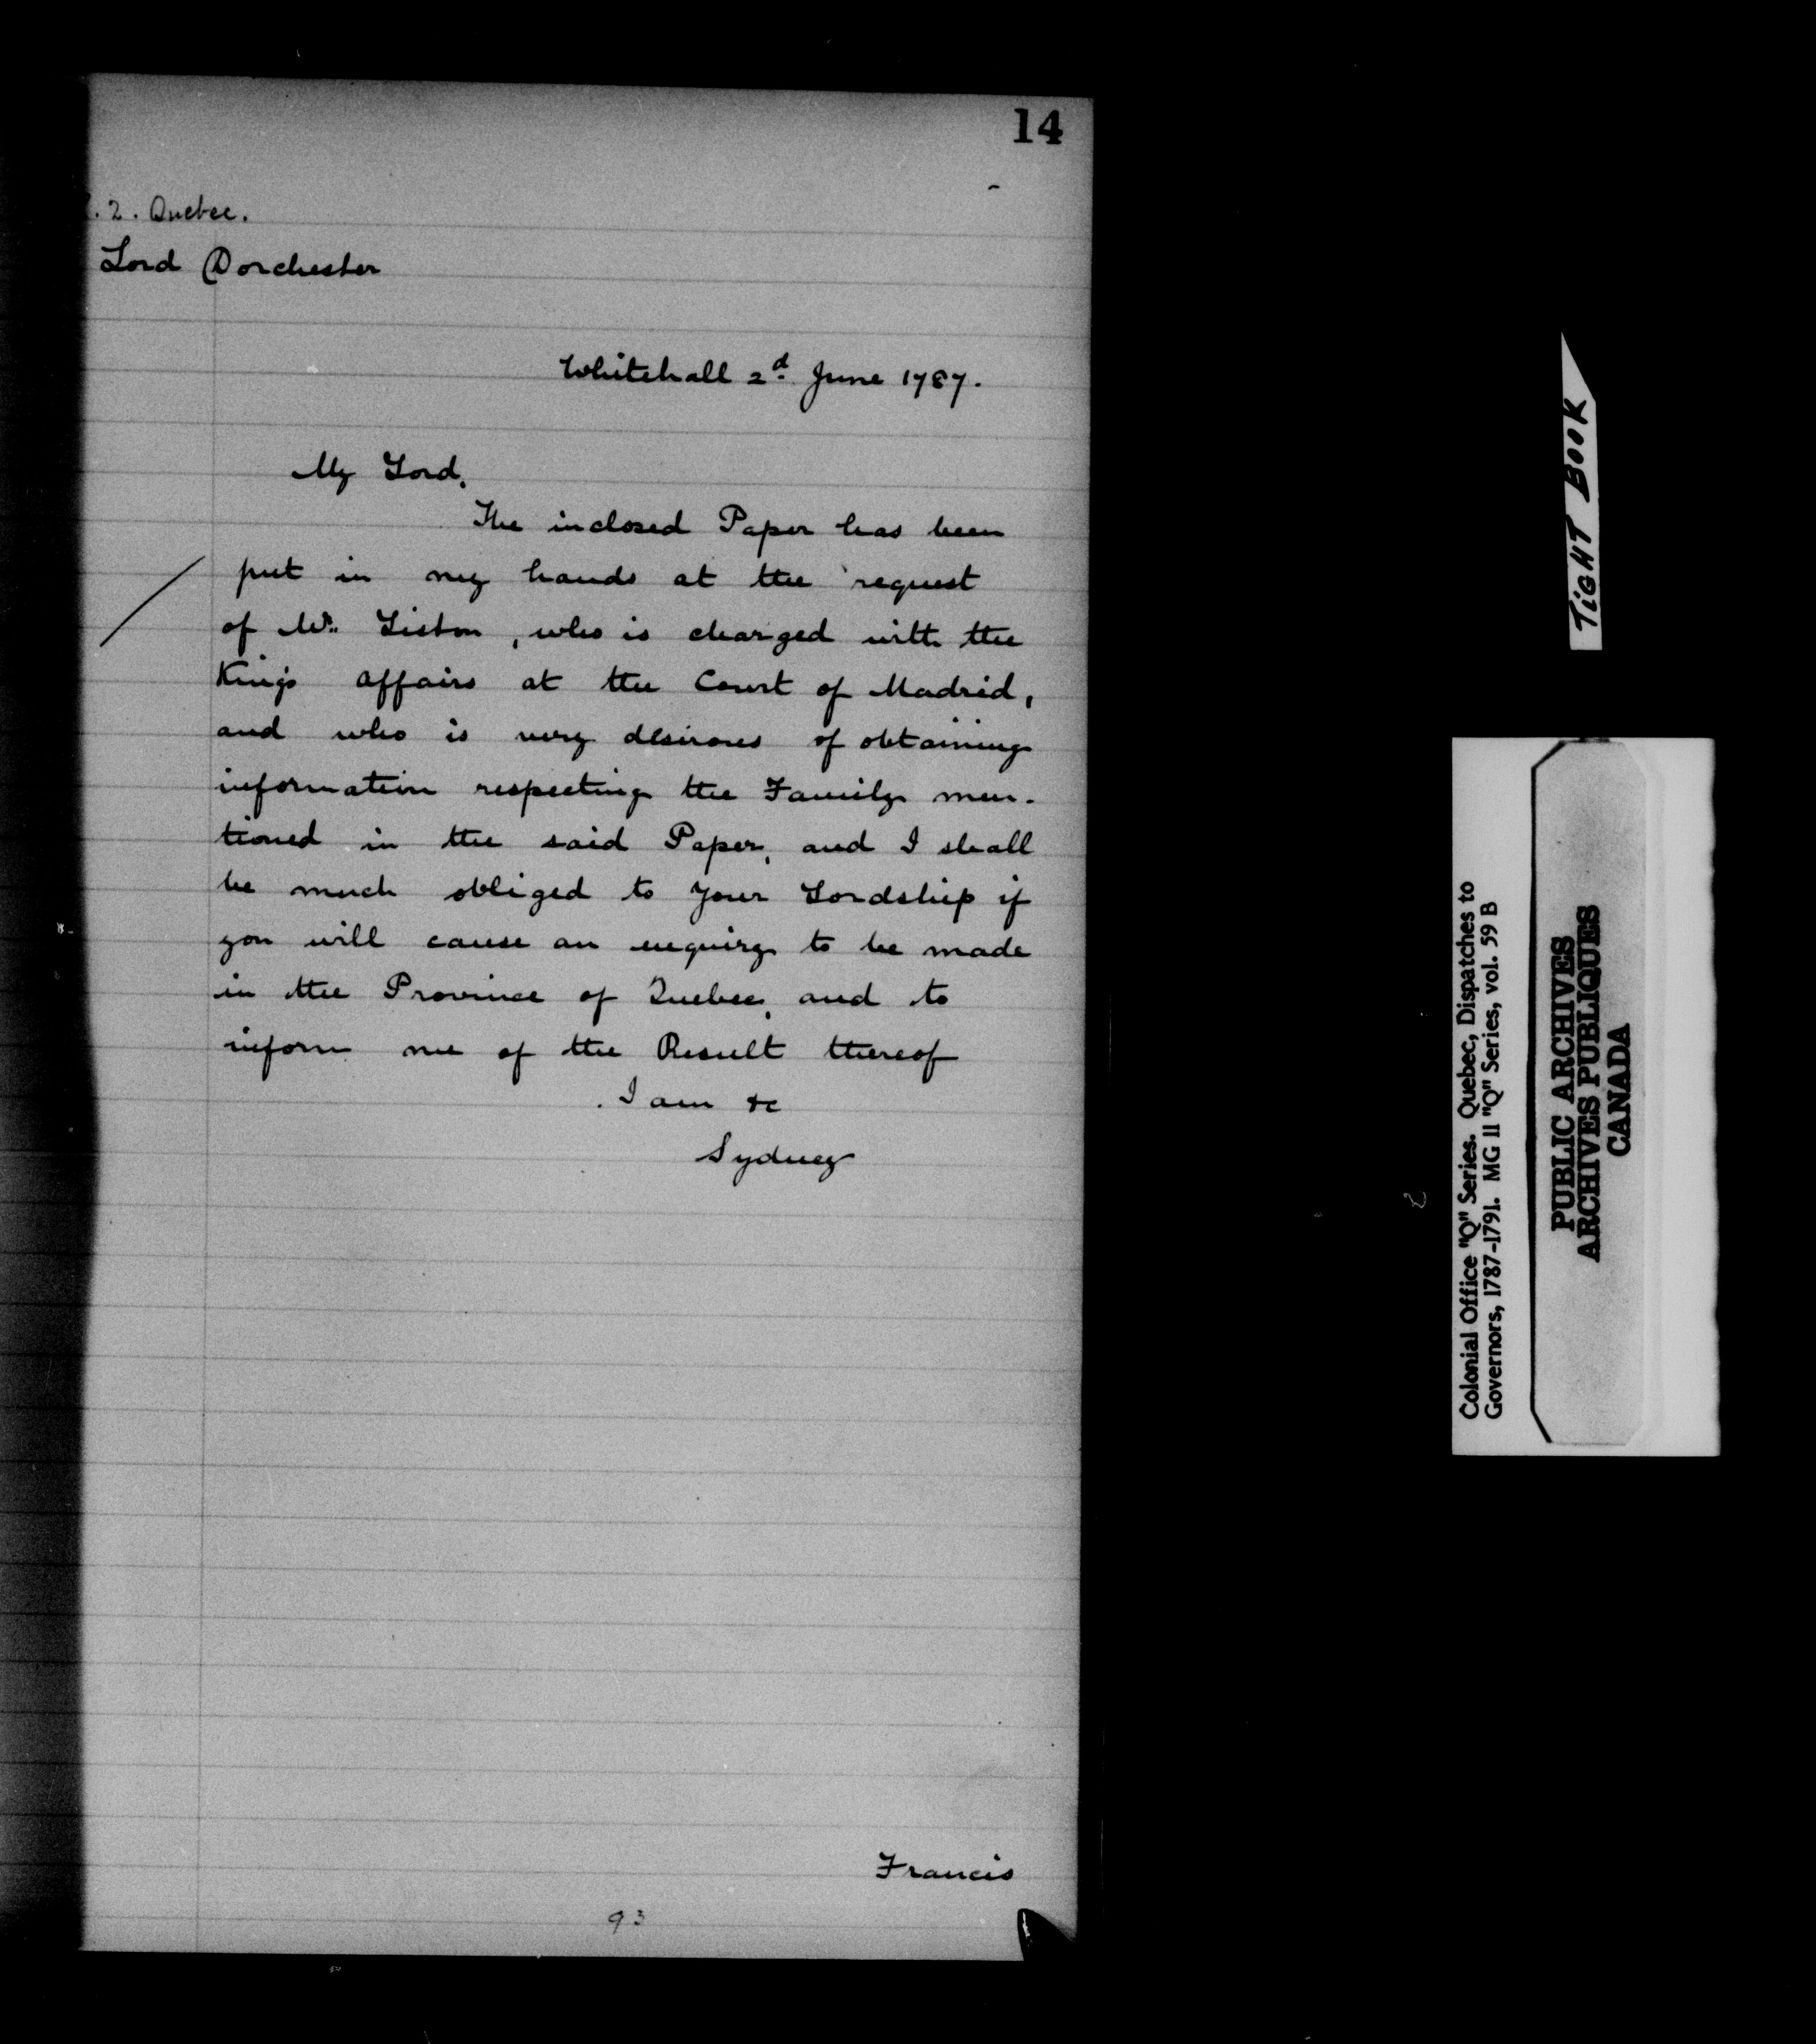 14
.2. Quebec.
Lord Dorchester
Whitehall 2d. June 1787.
My Lord,
The inclosed Paper has been
put in my hands at the request
of Mr. Liston, who is charged with the
King's affairs at the Court of Madrid,
and who is very desirous of obtaining
information respecting the Family men-
tioned in the said Paper, and I shall
be much obliged to your Lordship if
you will cause an enquiry to be made
in the Province of Quebec, and to
inform me of the Result thereof
I am &c
Sydney
Francis
93
TIGHT BOOK
Colonial Office "Q" Series. Quebec, Dispatches to
Governors, 1787-1791. MG 11 "Q" Series, vol. 59 B
PUBLIC ARCHIVES
ARCHIVES PUBLIQUES
CANADA
2